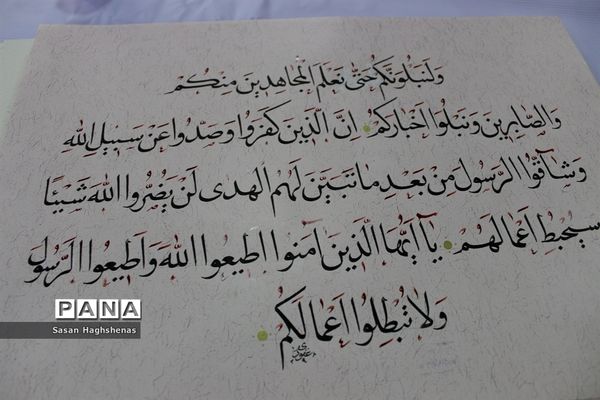 وَلَنَبْلُوَنَّكُمْ حَتَّىٰ نَعْلَمَ الْمُجَاهِدِينَ مِنْكُمْ
وَالصَّابِرِينَ وَنَبْلُوَا أَخْبَارَكُمْ إِنَّ الَّذِينَ كَفَرُوا وَصَدُّوا عَنْ سَبِيلِ اللهِ
وَشَاقُّوا الرَّسُولَ مِنْ بَعْدِ مَا تَبَيَّنَ لَهُمُ الْهُدَى لَنْ يَضُرُّوا اللهَ شَيْئًا
وَسَيُحْبِطُ أَعْمَالَهُمْ يَا أَيُّهَا الَّذِينَ آمَنُوا أَطِيعُوا اللهَ وَأَطِيعُوا الرَّسُولَ
وَلَا تُبْطِلُوا أَعْمَالَكُمْ
PANA
Sasan Haghshenas